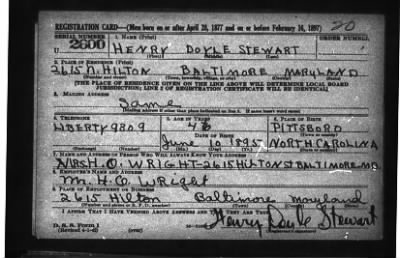 REGISTRATION CARD—(Men born on or after April 28, 1877 and on or before February 16, 1897) 20
SERIAL NUMBER 1. NAME (Print) ORDER NUMBER
U 2600 HENRY DOYLE STEWART
(First) (Middle) (Last)
2. PLACE OF RESIDENCE (Print)
2615 N. HILTON BALTIMORE MARYLAND
(Number and street) (Town, township, village, or city) (County) (State)
[THE PLACE OF RESIDENCE GIVEN ON THE LINE ABOVE WILL DETERMINE LOCAL BOARD
JURISDICTION; LINE 2 OF REGISTRATION CERTIFICATE WILL BE IDENTICAL]
3. MAILING ADDRESS
Same
[Mailing address if other than place indicated on line 2. If same insert word same]
4. TELEPHONE 5. AGE IN YEARS 6. PLACE OF BIRTH
LIBERTY 9809 46 PITTSBORO
DATE OF BIRTH
June 10 1895 NORTH CAROLINA
7. NAME AND ADDRESS OF PERSON WHO WILL ALWAYS KNOW YOUR ADDRESS
MRS. H. O. WRIGHT-2615 HILTON ST BALTIMORE-MD
8. EMPLOYER'S NAME AND ADDRESS
Mr. H. O. Wright
9. PLACE OF EMPLOYMENT OR BUSINESS
2615 Hilton Baltimore maryland
(Number and street or R. F. D. number) (Town) (County) (State)
I AFFIRM THAT I HAVE VERIFIED ABOVE ANSWERS AND THAT THEY ARE TRUE.
Henry Doyle Stewart
D. S. S. Form 1
(Revised 4-1-42) (over) (Registrant's signature)